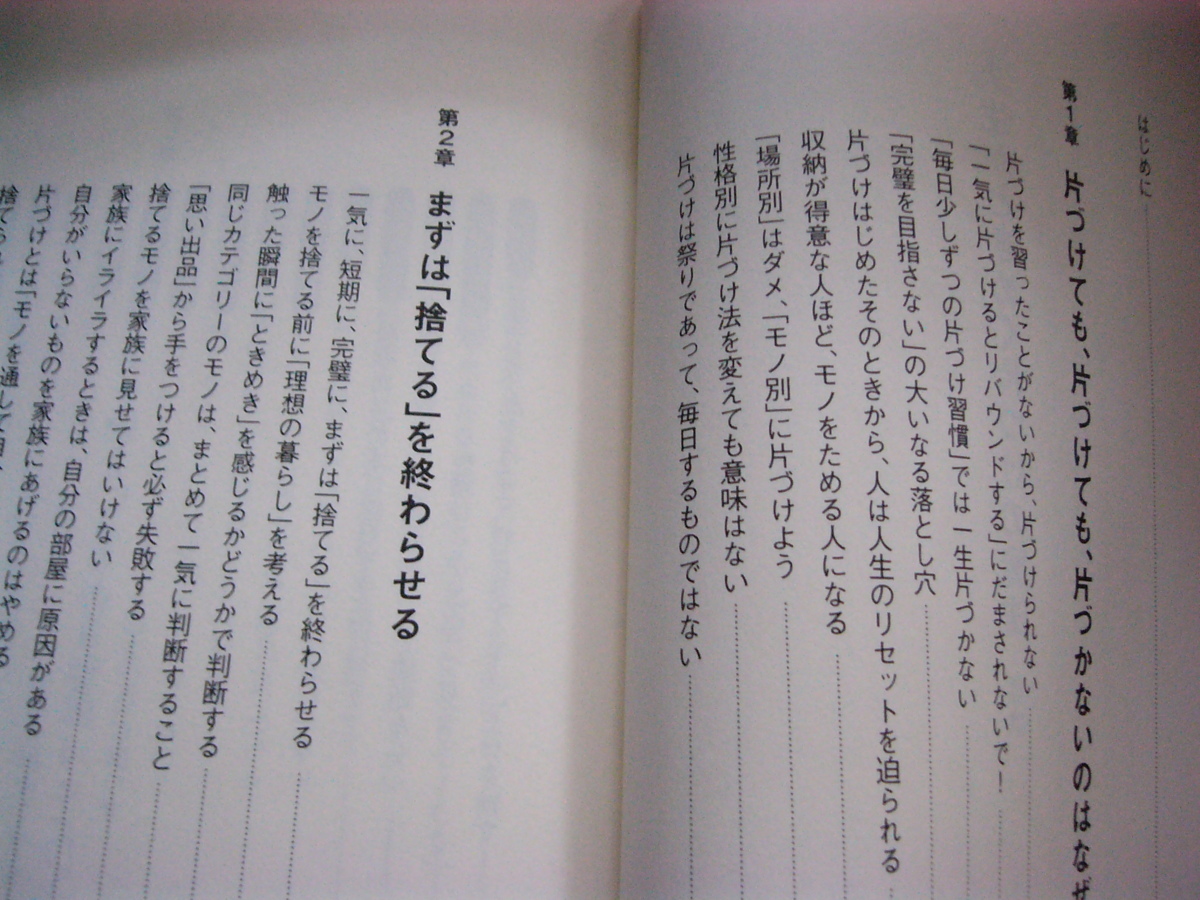 はじめに
第1章 片づけても、片づけても、片づかないのはなぜ
片づけを習ったことがないから、片づけられない
「一気に片づけるとリバウンドする」にだまされないで！
「毎日少しずつの片づけ習慣」では一生片づかない
「完璧を目指さない」の大いなる落とし穴
片づけはじめたそのときから、人は人生のリセットを迫られる
収納が得意な人ほど、モノをためる人になる
「場所別」はダメ、「モノ別」に片づけよう
性格別に片づけ法を変えても意味はない
片づけは祭りであって、毎日するものではない
第2章 まずは「捨てる」を終わらせる
一気に、短期に、完璧に、まずは「捨てる」を終わらせる
モノを捨てる前に「理想の暮らし」を考える
触った瞬間に「ときめき」を感じるかどうかで判断する
同じカテゴリーのモノは、まとめて一気に判断すること
「思い出品」から手をつけると必ず失敗する
捨てるモノを家族に見せてはいけない
家族にイライラするときは、自分の部屋に原因がある
自分がいらないものを家族にあげるのはやめる
片づけとは「モノを通して自
捨てられ